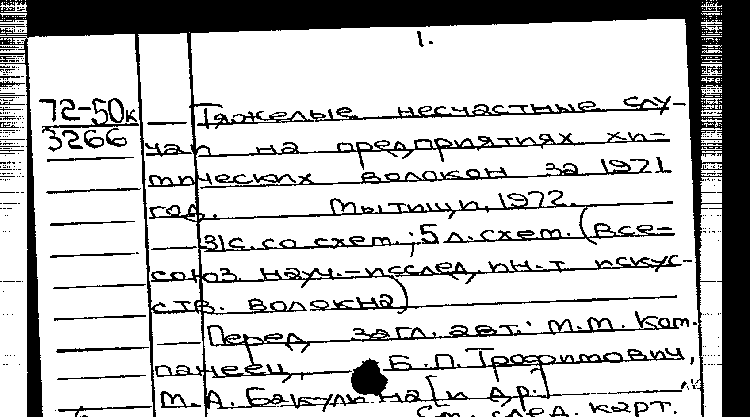 1.
72-50к
3266
Тяжелые несчастные слу-
чаи на предприятиях хи-
мических волокон за 1971
год. Мытищи, 1972.
31с. со схем.; 5 л. схем. (Все-
союз. науч.-исслед. ин-т искус-
ств. волокна)
Перед загл. авт.: М.М. Ком-
панеец, Б.П. Трофимович,
М.А. Бакулина [и др.]
См. след. карт.